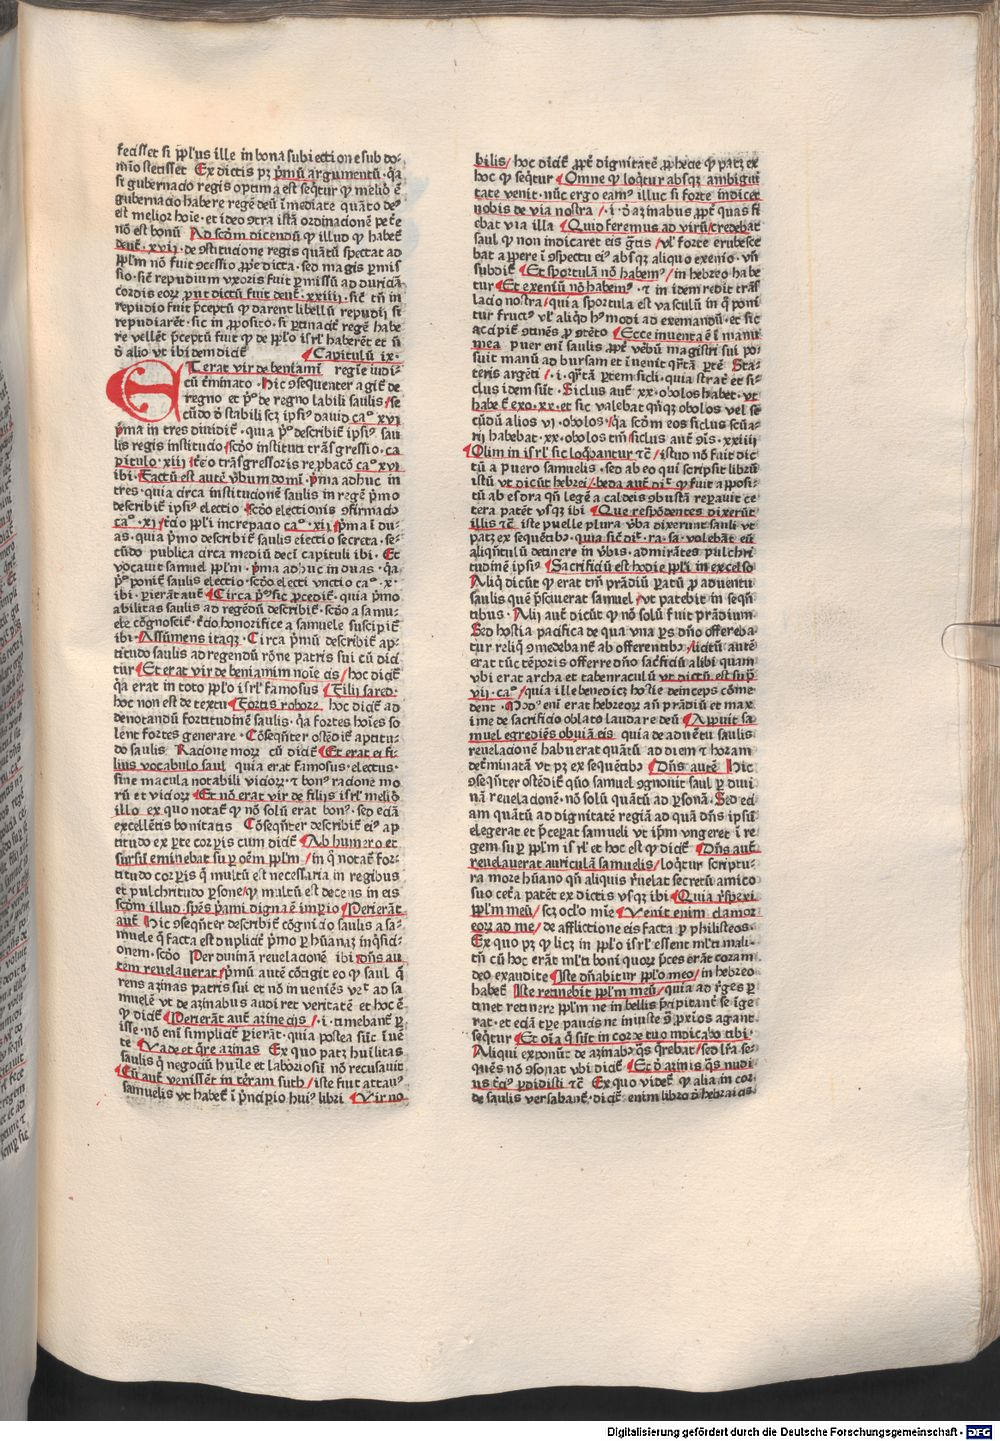 fecisset si ppl'us ille in bona subiectione sub do-
mīo stetisset Ex dictis pꝫ pͥmū argumentū · qͣa
si gubernacio regis optima est seqͥtur ꝙ meliꝰ ē
gubernacio habere regē deū īmediate quāto deꝰ
est melior hoīe · et ideo ꝯtra istā ordinacionē petēre
nō est bonū Ad scḋm dicendū ꝙ illud ꝙ habet̄
deut̄ · xvij · de ꝯstitucione regis quātū spectat ad
ppl'm nō fuit ꝯcessio ꝓprie dicta · sed magis ꝑmis
sio · sic̄ repudium vxoris fuit ꝑmissū ad duriciā
cordis eorꝝ put dictū fuit deut̄ · xxiiij · sic̄ tn̄ in
repudio fuit p̄ceptū ꝙ darent libellū repudij si
repudiarēt · sic in ꝓposito · si ꝑtinacit̄ regē habe
re vellēt p̄ceptū fuit ꝙ de ppl'o isrl' haberēt et nō
d̄ alio vt ibidem dicit̄ Capitulū ix ·
ETerat vir de beniami regīe iudi-
cū t̄minato · Hic ꝯsequenter agit̄ de
regno et pͥº de regno labili saulis / se
cūdo d̄ stabili scꝫ ipsiꝰ dauid caº xvj
pͥma in tres diuidit̄ · quia pͥº describit̄ ipsiꝰ sau
lis regis institucio / scḋo instituti trāsgressio · ca
pitulo · xiij / t̄cio trāsgressoris reꝓbacō caº xv
ibi · Factū est autē v̄bum domī · pͥma adhuc in
tres · quia circa institucionē saulis in regē pͥmo
describit̄ ipsiꝰ electio · scḋo electionis ꝯfirmacio
caº · xj / t̄cio ppl'i increpacio caº · xij / pͥma ī du-
as · quia pͥmo describit̄ saulis eiectio secreta · se-
cūdo publica circa mediū decī capituli ibi · Et
vocauit samuel ppl'm · pͥma adhuc in duas · qͣa
pͥº ponit̄ saulis electio · scḋo electi vnctio caº · x ·
ibi · ꝑierāt aut̄ Circa pͥº sic ꝓcedit̄ · quia pͥmo
abilitas saulis ad regēdū describit̄ · scḋo a samu-
ele cōgnoscit̄ · t̄cio honorifice a samuele suscipit̄
ibi · Assūmens itaqꝫ · Circa pͥmū describit̄ ap-
titudo saulis ad regendū rōne patris sui cū dici
tur Et erat vir de beniamim noīe cis / hoc dicit̄
qͣa erat in toto ppl'o isrl' famosus Filij sared ·
hoc non est de textu Fortis robore hoc dicit̄ ad
denotandū fortitudinē saulis · qͣa fortes hoīes so
lent fortes generare · Cōseqn̄ter ostēdit̄ aptitu-
do saulis Racione morꝝ cū dicit̄ Et erat ei fi-
lius vocabulo saul quia erat famosus · electus ·
sine macula notabili viciorꝝ · ⁊ bonꝰ racione mo
rū et viciorꝝ Et nō erat vir de filijs isrl' meliꝰ
illo ex quo notat̄ ꝙ nō solū erat bonꝰ · sed eciā
excellētis bonitatis Cōseqn̄ter describit̄ eiꝰ ap
titudo ex ꝑte corꝑis cum dicit̄ Ab humero et
sursū eminebat suꝑ oēm ppl'm / in qͦ notat̄ for-
titudo corꝑis qͥ multū est necessaria in regibus
et pulchritudo ꝑsone / ꝙ multū est decens in eis
scḋm illud · spēs pͥami digna ē imꝑio Perierāt
aut̄ Hic ꝯseqn̄ter describit̄ cōgnicio saulis a sa-
muele qͥ facta est duplicit̄ pͥmo ꝑ hūanaꝫ inqͥsici-
onem · scḋo Per diuinā reuelacionē ibi / dn̄s au
tem reuelauerat / pͥmū autē cōtigit eo ꝙ saul q̄
rens azinas patris sui et nō inueniēs vēt ad sa
muelē vt de azinabus audiret veritatē et hoc ē
ꝙ dicit̄ Perierāt aut̄ azine cis / · i · timebant̄ ꝑ
isse · nō enī simplicit̄ ꝑierāt · quia postea sūt īuē
te Vade et q̄re azinas Ex quo patꝫ hūilitas
saulis qͥ negociū hūile et laboriosū nō recusauit
Cū aut̄ venissēt in t̄ram suth / iste fuit attauꝰ
samuelis vt habet̄ ī pͥncipio huiꝰ libri Vir no
bilis / hoc dicit̄ ꝓpt̄ dignitatē ꝓphecie ꝙ patꝫ ex
hoc ꝙ seqͥtur Omne ꝙ loqͥtur absqꝫ ambigui
tate venit · nūc ergo eamꝰ illuc si forte indicet
nobis de via nostra / · i · d̄ azinabus ꝓpt̄ quas fi
ebat via illa Quid feremus ad virū / credebat
saul ꝙ non indicaret eis gͣtis / vl' forte erubesce
bat apꝑere ī ꝯspectu eiꝰ absqꝫ aliquo exenio · vn̄
subdit̄ Et sportulā nō habemꝰ / in hebreo habe
tur Et exeniū nō habemꝰ · ⁊ in idem redit trās
lacio nostra / quia sportula est vasculū in qͦ poni
tur fructꝰ vl' aliqͥd hꝰmodi ad exemandū · et sic
accipit̄ ꝯtinēs ꝓ ꝯtēto Ecce inuenta ē ī manu
mea puer enī saulis ꝓpt̄ v̄bū magistri sui po-
suit manū ad bursam et īuenit qͣrtā ꝑtē Sta-
teris argēti / · i · qͣrtā ꝑtem sicli · quia strat̄ et si-
clus idem sūt · Siclus aut̄ xx · obolos habet · vt
habet̄ exo · xx · et sic valebat qͥnqꝫ obolos vel se
cūdū alios vj · obolos · qͣa scḋm eos siclus scūa-
rij habebat · xx · obolos tn̄ siclus aut̄ ꝯis · xxiiij
Olim in isrl' sic loqͣbantur ⁊c̄ / istud nō fuit dic
tū a puero samuelis · sed ab eo qui scripsit librū
istū vt dicūt hebrei / · beda aut̄ dīc̄ ꝙ fuit apposi-
tū ab esdra qn̄ legē a caldeis ꝯbustā reꝑauit ce
tera patēt vsqꝫ ibi Que respōdentes dixerūt
illis ⁊c̄ iste puelle plura v̄ba dixerunt sauli vt
patꝫ ex sequētibꝰ · quia sic̄ dīt · ra · sa · volebāt eū
aliqn̄tulū detinere in v̄bis · admirātes pulchri
tudinē ipsiꝰ Sacrificiū est hodie ppl'i in excelso
Aliqͥ dicūt ꝙ erat tn̄ prādiū ꝑatū ꝓ aduentu
saulis quē p̄sciuerat samuel / vt patebit in seqn̄
tibus · Alij aut̄ dicūt ꝙ nō solū fuit prādium ·
Sed hostia pacifica de qua vna ꝑs dn̄o offereba
tur reliqͣ ꝯmedebant̄ ab offerentibꝰ / licitū autē
erat tūc tēporis offerre dn̄o sacͥficiū alibi quam
vbi erat archa et tabernaculū vt dictū est supͣ
vij · caº / quia ille benedicꝫ hostie deinceps cōme
dent · Modꝰ enī erat hebreorꝝ an̄ prādiū et max
ime de sacrificio oblato laudare deū Apꝑuit sa
muel egrediēs obuiā eis quia de aduētu saulis
reuelacionē habuerat quātū ad diem ⁊ horam
det̄minatā vt pꝫ ex sequētibꝰ Dn̄s autē Hic
ꝯseqn̄ter ostēdit̄ qūo samuel ꝯgnouit saul ꝑ diui
nā reuelacionē · nō solū quātū ad ꝑsonā · Sed eci
am quātū ad dignitatē regiā ad quā dn̄s ipsū
elegerat et p̄ceꝑat samueli vt ip̄m vngeret ī re
gem suꝑ ppl'm isrl' et hoc est ꝙ dicit̄ Dn̄s aut̄
reuelauerat auriculā samuelis / loqͥtur scriptu-
ra more hūano qn̄ aliquis r̄uelat secretū amico
suo cet̄a patēt ex dictis vsqꝫ ibi Quia r̄spexi
ppl'm meū / scꝫ oclo mīe Venit enim clamor
eorꝝ ad me / de afflictione eis facta ꝑ philisteos ·
Ex quo pꝫ ꝙ licꝫ in ppl'o isrl' essent ml'ti mali ·
tn̄ cū hoc erāt ml'ti boni quorꝝ p̄ces erāt coram
deo exaudite Iste dn̄abitur ppl'o meo / in hebreo
habet̄ Iste retinebit ppl'm meū / quia ad rͤges ꝑ
tinet retinere ppl'm ne in bellis p̄cipitant̄ se īge
rāt · et eciā tꝑe pacis ne iniuste ꝯͣ ꝓxīos agant ·
seqͥtur Et oīa qͥ sūt in corde tuo indicabo tibi ·
Aliqui exponūt de azinabꝰ qͣs q̄rebat / sed lr̄a se-
quēs nō ꝯsonat vbi dicit̄ Et d̄ azinis qͣs nudi
us t̄ciꝰ ꝑdidisti ⁊c̄ Ex quo videt̄ ꝙ alia in cor-
de saulis versabant̄ · dicit̄ enim libro d̄ hebraicis
Digitalisierung gefördert durch die Deutsche Forschungsgemeinschaft - DFG